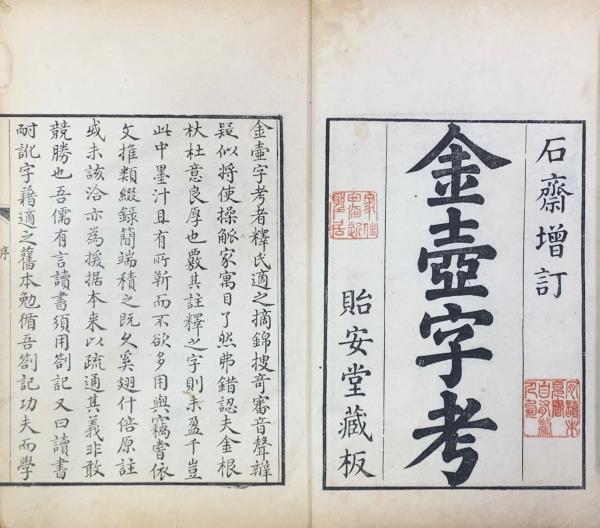 石齋增訂
金壺字考
貽安堂藏板
金壺字考者釋氏適之摘錦搜竒審音聲辨
疑似將使操觚家寓目了然弗錯認夫金根
杕杜意良厚也覈其註釋之字則未盈千豈
此中墨汁且有所靳而不欲多用與竊嘗依
文推類綴録簡端積之既久奚翅什倍原註
或未該洽亦為援据本来以疏通其義非敢
競勝也吾儒有言讀書須用劄記又曰讀書
耐訛字藉適之舊本勉循吾劄記功夫而學
序